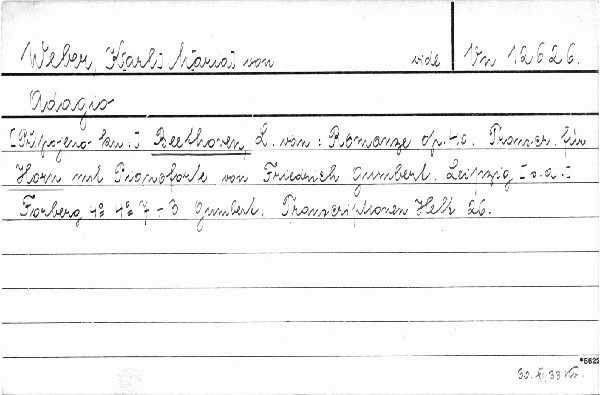 Weber, Karl Maria von vide Vn 12626.
Adagio
[Připojeno kn.:] Beethoven, L. van: Romanze op. 40. Transcr. für
Horn mit Pianoforte von Friedrich Gumbert. Leipzig [s.a.]
Forberg 4° 4° 7-3 Gumbert: Transcriptionen Heft 26.
*5622